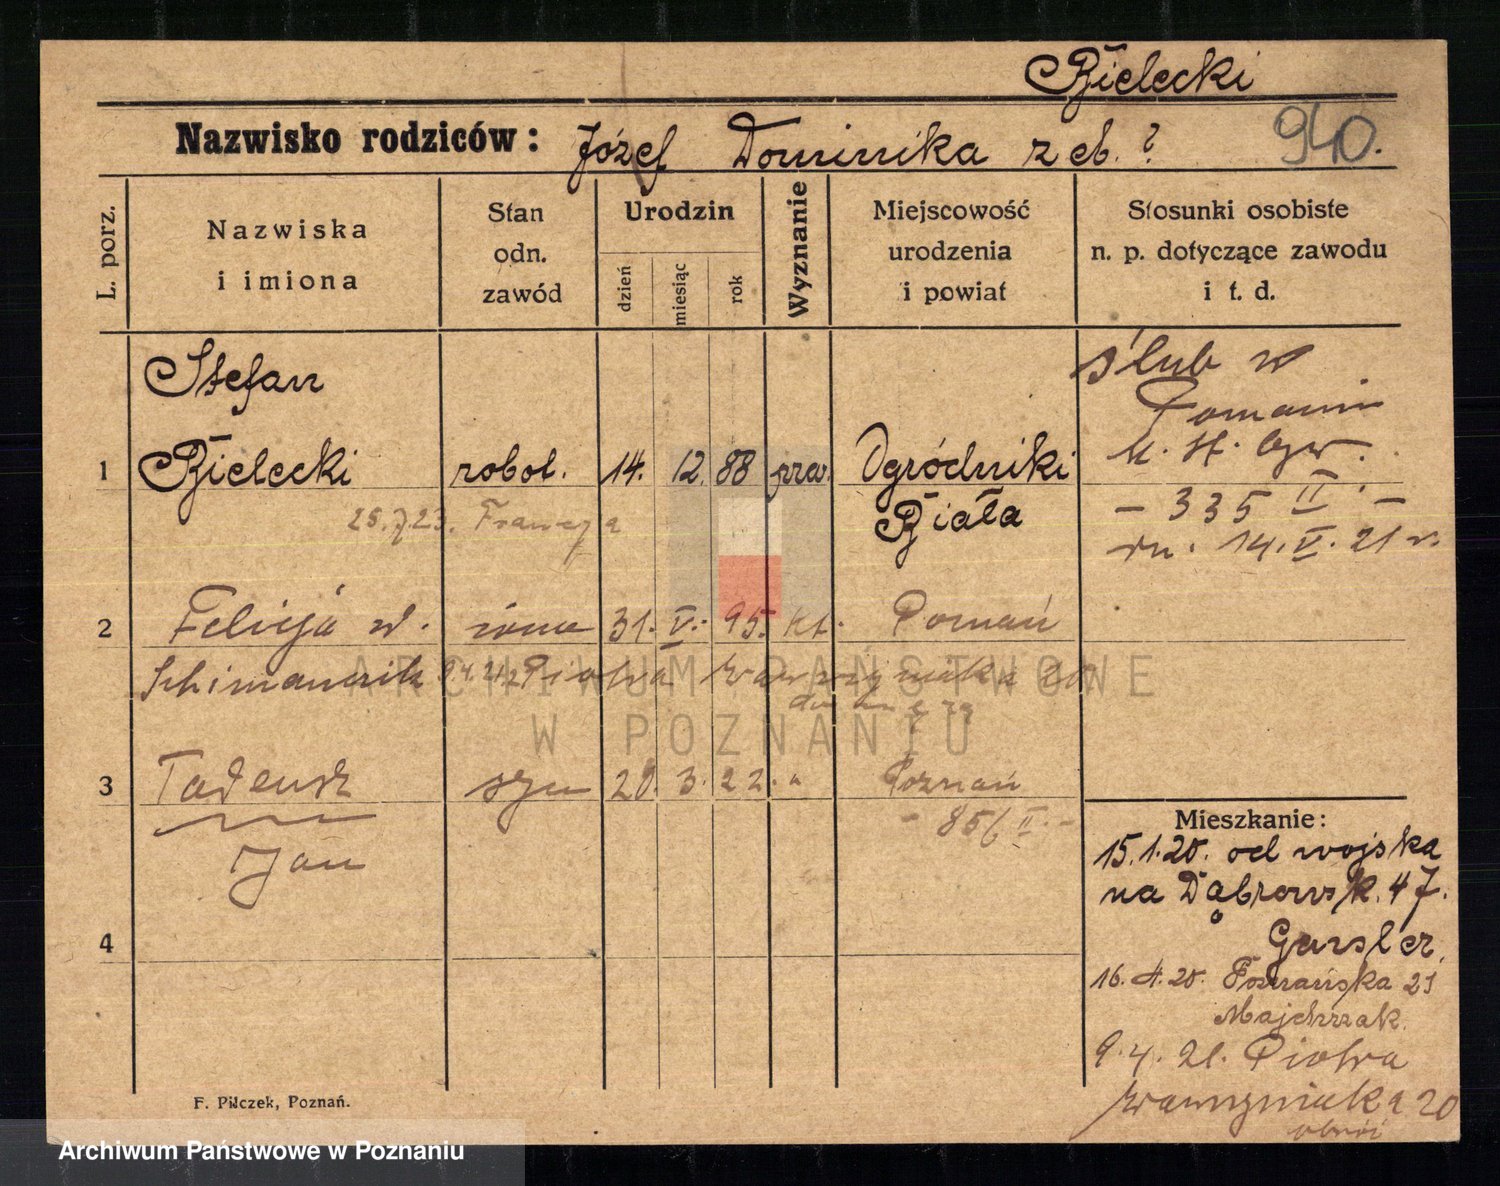 Bielecki
Nazwisko rodziców: Józef Dominika z eb. ?
940.
L. porz.
Nazwiska
i imiona
Stan
odn.
zawód
Urodzin
dzień
miesiąc
rok
Wyznanie
Miejscowość
urodzenia
i powiat
Stosunki osobiste
n. p. dotyczące zawodu
i t. d.
Stefan
1 Bielecki robot. 14. 12. 88 praw. Ogródniki
Biała
25.7.23. Francja
ślub w
Poznaniu
- 335 II. -
dn. 14. V. 21 r.
2 Felicja z d. żona 31. V. 95. kt. Poznań
9.4.21 Piotra Wawrzyniaka 20
3 Tadeusz syn 20. 3. 22. " Poznań
- 856 II. -
Jan
4
Mieszkanie:
15.1.20. od wojska
na Dąbrowsk. 47.
Gensler.
16.4.20. Poznańska 21
Majchrzak.
9.4.21. Piotra
Wawrzyniaka 20
F. Pilczek, Poznań.
ARCHIWUM PAŃSTWOWE
W POZNANIU
Archiwum Państwowe w Poznaniu